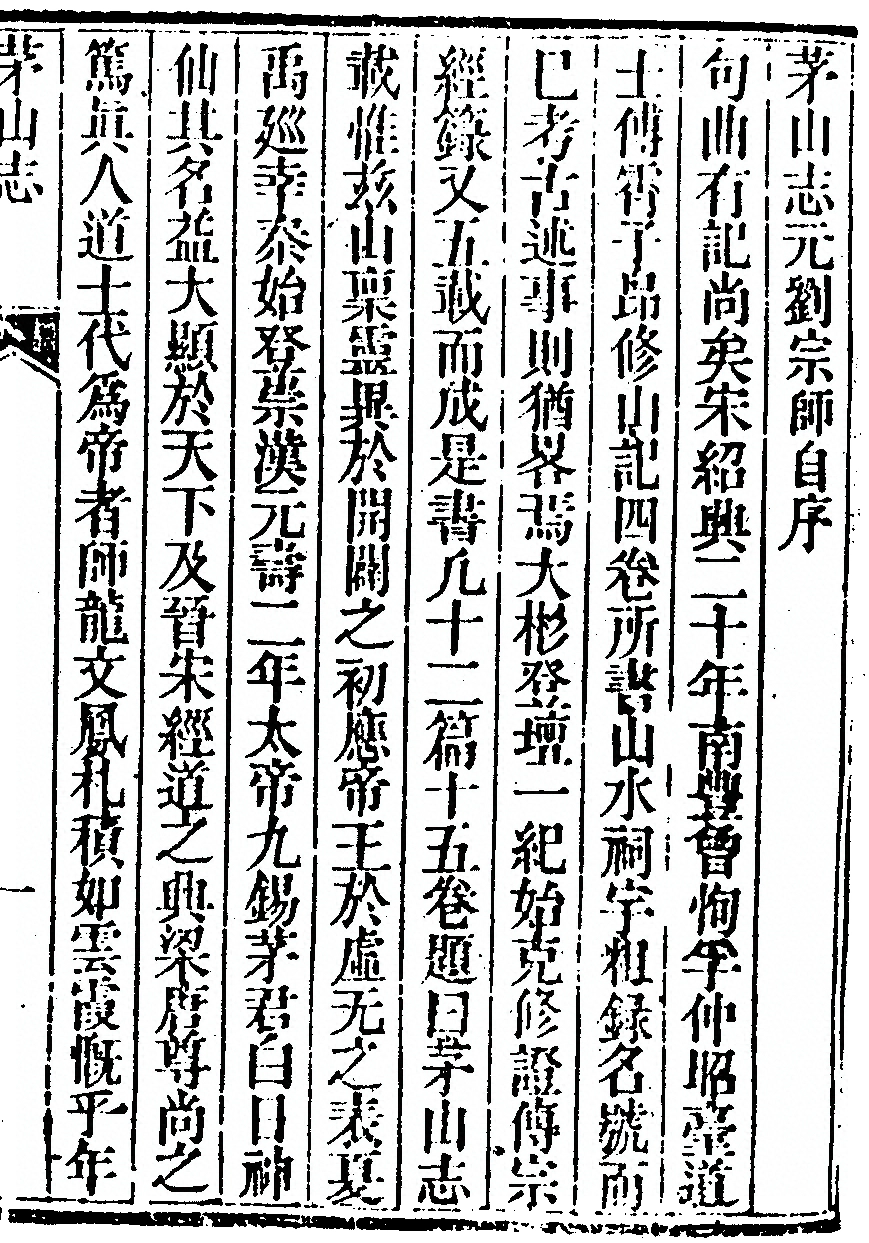 茅山志元劉宗師自序
句曲有記尚矣宋紹興二十年南豐曾恂孚仲昭臺道
士傅霄子昂修山記四卷所書山水祠宇粗錄名號而
已考古述事則猶畧焉大彬登壇一紀始克修證傳宗
經籙又五載而成是書凡十二篇十五卷題曰茅山志
載惟玆山稟靈異於開闢之初應帝王於虛无之表夏
禹廵幸秦始登崇漢元壽二年太帝九錫茅君白日神
仙其名益大顯於天下及晉宋經道之興梁唐尊尚之
篤眞人道士代爲帝者師龍文鳳札積如雲霞慨乎年
茅山志
一